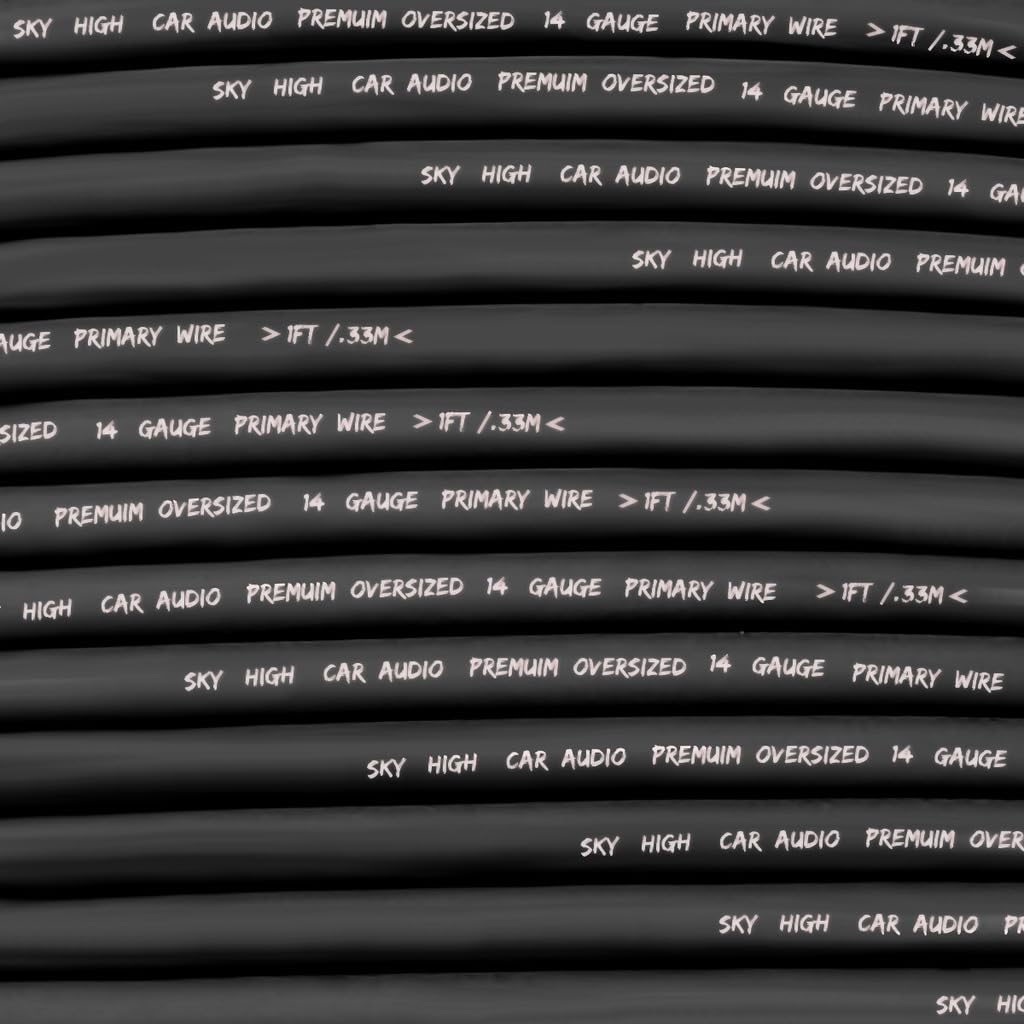 SKY HIGH CAR AUDIO PREMUIM OVERSIZED 14 GAUGE PRIMARY WIRE >1FT /.33M<
SKY HIGH CAR AUDIO PREMUIM OVERSIZED 14 GAUGE PRIMARY WIRE
SKY HIGH CAR AUDIO PREMUIM OVERSIZED 14 GAU
SKY HIGH CAR AUDIO PREMUIM
AUGE PRIMARY WIRE >1FT /.33M<
SIZED 14 GAUGE PRIMARY WIRE >1FT /.33M<
IO PREMUIM OVERSIZED 14 GAUGE PRIMARY WIRE >1FT /.33M<
HIGH CAR AUDIO PREMUIM OVERSIZED 14 GAUGE PRIMARY WIRE >1FT /.33M<
SKY HIGH CAR AUDIO PREMUIM OVERSIZED 14 GAUGE PRIMARY WIRE
SKY HIGH CAR AUDIO PREMUIM OVERSIZED 14 GAUGE
SKY HIGH CAR AUDIO PREMUIM OVER
SKY HIGH CAR AUDIO PR
SKY HIG